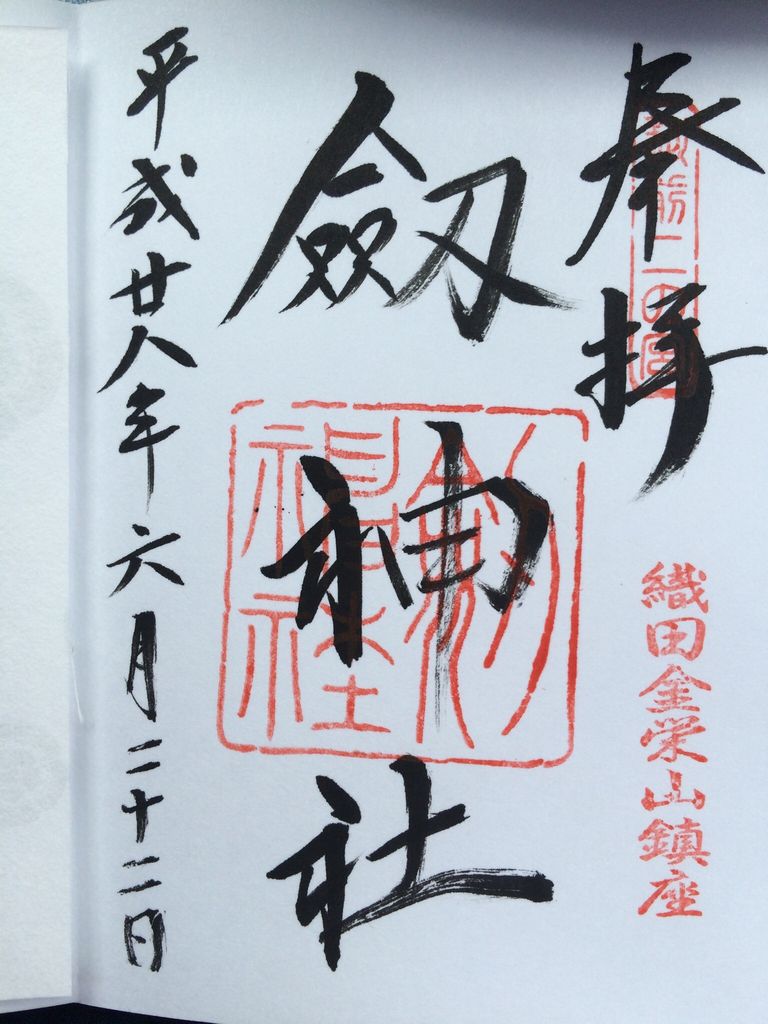 奉拝
越前二の宮
織田金栄山鎮座
劔神社
劔神社
平成廿八年六月二十二日